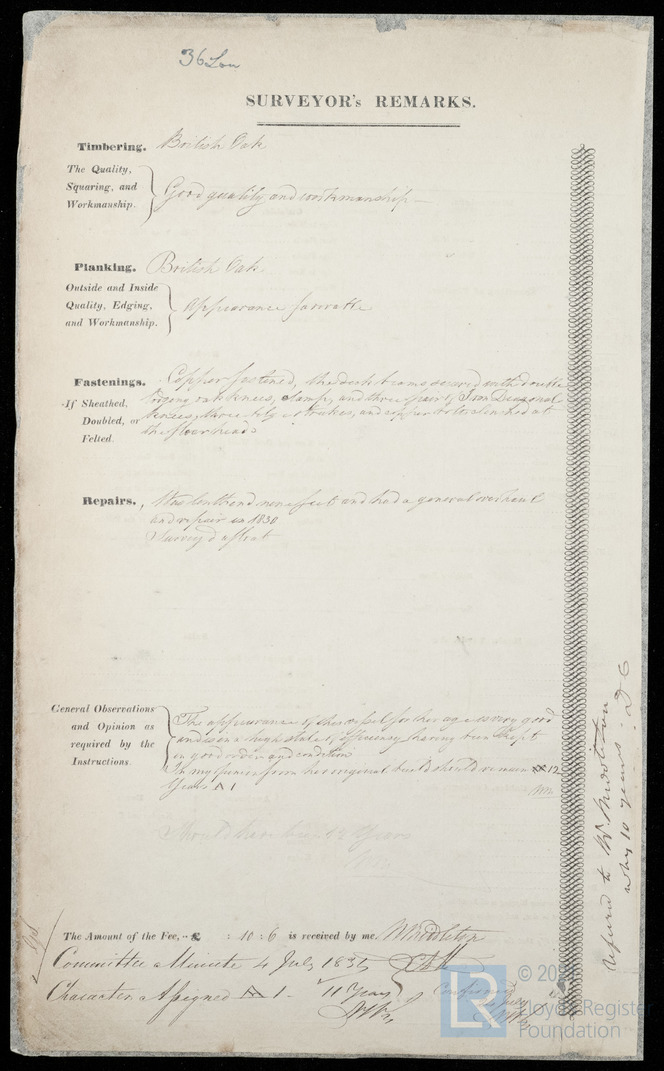 36 Lon
SURVEYOR's REMARKS.
Timbering. British Oak
The Quality,
Squaring, and
Workmanship.
Good quality and workmanship —
Planking. British Oak
Outside and Inside
Quality, Edging,
and Workmanship.
Appearance favorable
Fastenings. Copper fastened, the deck beams secured with double
If Sheathed,
Doubled, or
Felted.
oak knees, clamps, and three pair of Iron Diagonal
knees, three strakes, and copper bolts clenched at
the floor heads
Repairs. Was and had a general overhaul
and repair in 1830
Surveyed afloat
General Observations
and Opinion as
required by the
Instructions.
The appearance of this vessel for her age is very good
and is in a high state of efficiency having been kept
in good order and condition
In my opinion from her original build should remain 12
Years A 1
Should have been 12 Years
The Amount of the Fee, £ : 10 : 6 is received by me, Middleton
Committee Minute 4 July 1834
Character Assigned A 1 11 Years
Confirmed
July
referred to Mr. Middleton
why 10 years
© 20
LR
Lloyd's Register
Foundation